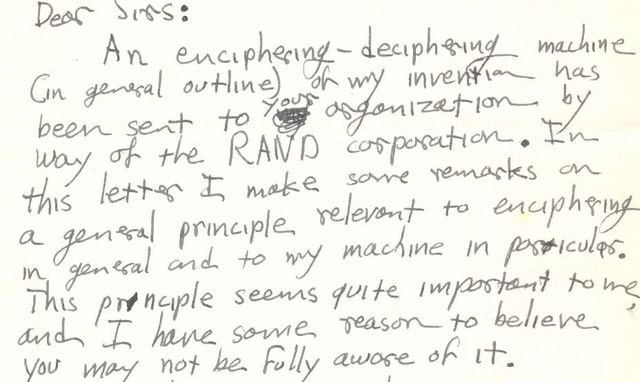 Dear Sirs:
An enciphering-deciphering machine
(in general outline) of my invention has
been sent to your organization by
way of the RAND corporation. In
this letter I make some remarks on
a general principle relevant to enciphering
in general and to my machine in particular.
This principle seems quite important to me,
and I have some reason to believe
you may not be fully aware of it.